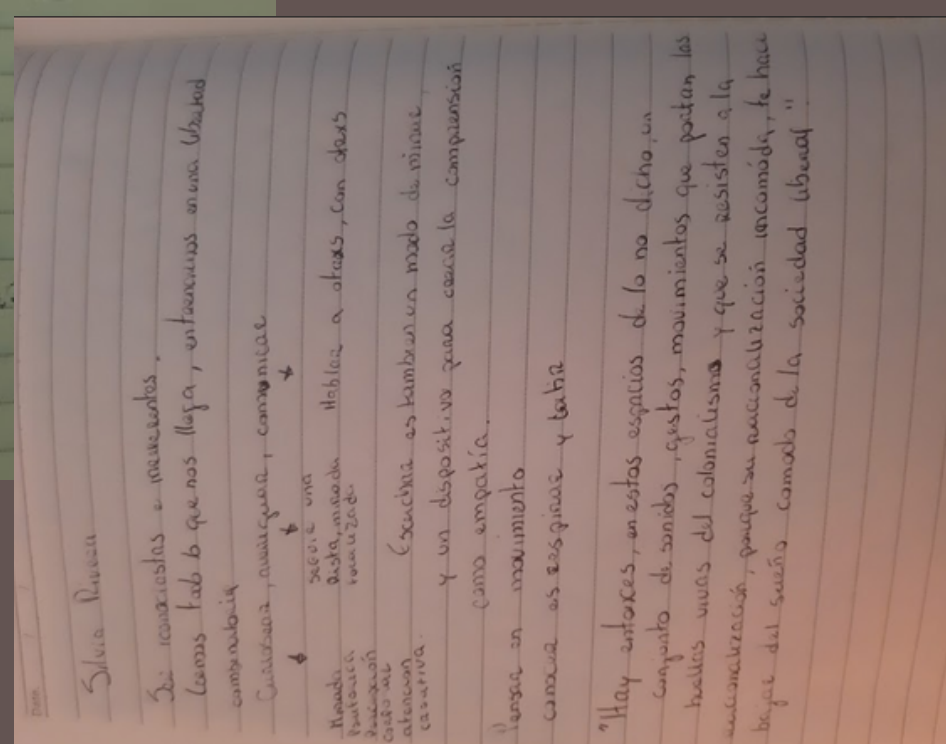 Date
Silvia Rivera
Ser iconoclastas e irreverentes.
todo lo que nos llega, en una libertad
compartida
Curiosear, averiguar, comunicar
Mirada periférica percepción corporal atención creativa.
Seguir una pista, mirada focalizada
Hablar a otrxs, con otrxs
Escuchar es tambien un modo de mirar,
y un dispositivo para crear la comprensión
como empatía.
Pensar en movimiento
conocer es respirar y latir
"Hay entonces, en estos espacios de lo no dicho, un
conjunto de sonidos, gestos, movimientos que portan las
huellas vivas del colonialismo y que se resisten a la
racionalización, porque su racionalización incomoda, te hace
bajar del sueño comodo de la sociedad liberal".